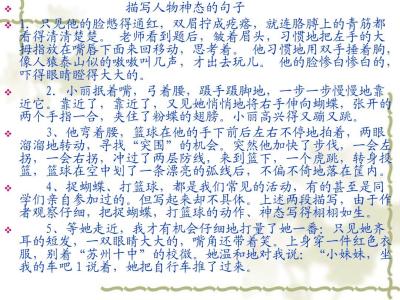 描写人物神态的句子
1、只见他的脸憋得通红，双眉拧成疙瘩，就连胳膊上的青筋都
看得清清楚楚。 老师看到题后，皱着眉头，习惯地把左手的大
拇指放在嘴唇下面来回移动，思考着。 他习惯地用双手捶着胸，
像人猿泰山似的嗷嗷叫几声，才出去玩儿。 他的脸惨白惨白的，
吓得眼睛瞪得大大的。
2、小丽抿着嘴，弓着腰，蹑手蹑脚地，一步一步慢慢地靠
近它。靠近了，靠近了，又见她悄悄地将右手伸向蝴蝶，张开的
两个手指一合，夹住了粉蝶的翅膀。小丽高兴得又蹦又跳。
3、他弯着腰，篮球在他的手下前后左右不停地拍着，两眼
溜溜地转动，寻找“突围”的机会。突然他加快了步伐，一会左
拐，一会右拐，冲过了两层防线，来到篮下，一个虎跳，转身投
篮，篮球在空中划了一条漂亮的弧线后，不偏不倚地落在筐内。
4、捉蝴蝶、打篮球，都是我们常见的活动，有的甚至是同
学们亲自参加过的。但写起来却不具体。上述两段描写，由于作
者观察仔细，把捉蝴蝶、打篮球的动作、神态写得栩栩如生。
5、等她走近，我才有机会仔细地打量了她一番：只见她齐
耳的短发，一双眼睛大大的，嘴角还带着笑。上身穿一件红色衣
服，别着“苏州十中”的校徽。她温和地对我说：“小妹妹，坐
我的车吧1说着，她把自行车推了过来。